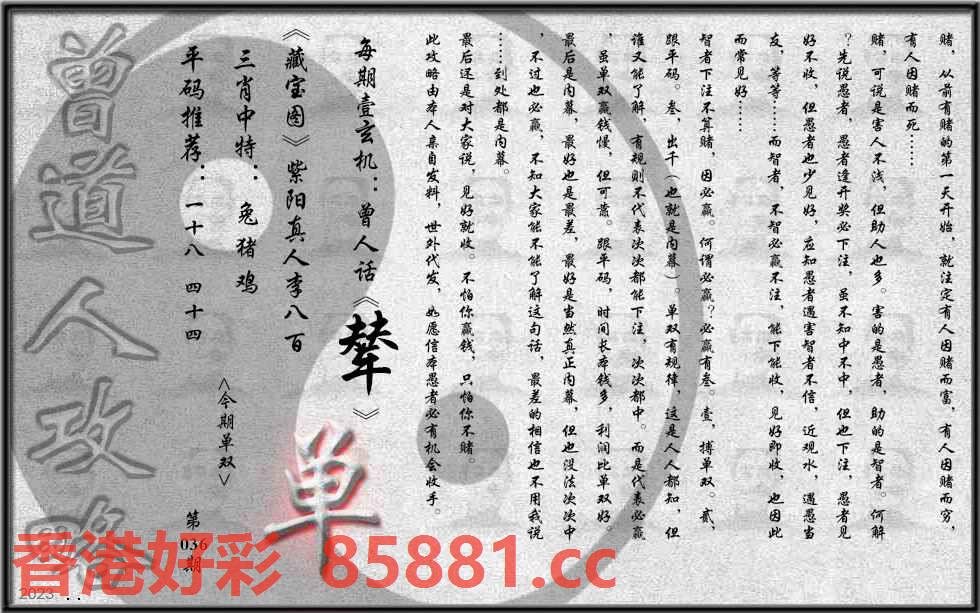 赌，从前有赌的第一天开始，就注定有人因赌而富，有人因赌而穷，
有人因赌而死……
赌，可说是害人不浅，但助人也多。害的是愚者，助的是智者。何解
？先说愚者，愚者逢开奖必下注，虽不知中不中，但也下注，愚者见
好不收，但愚者也少见好，应知愚者遇害智者不信，近观水，遇愚当
友，等等……而智者，不智必赢不注，能下能收，见好即收，也因此
而常见好……
智者下注不算赌，因必赢。何谓必赢？必赢有叁。壹，搏单双。贰，
跟平码。叁，出千（也就是内幕）。单双有规律，这是人人都知，但
谁又能了解，有规则不代表次次都能下注，次次都中。而是代表必赢
，虽单双赢钱慢，但可蓄。跟平码，时间长本钱多，利润比单双好。
最后是内幕，最好也是最差，最好是当然真正内幕，但也没法次次中
，不过也必赢，不知大家能不能了解这句话，最差的相信也不用我说
……到处都是内幕。
最后还是对大家说，见好就收。不怕你赢钱，只怕你不赌。
此攻略由本人亲自发料，世外代发，如愿信本愚者必有机会收手。
每期壹玄机：曾人话《辇》
《藏宝图》紫阳真人李八百
三肖中特：兔 猪 鸡
平码推荐：一十八 四十四
<今期单双>
单
第
036
期
曾道人攻略
香港好彩 85881.cc
2023